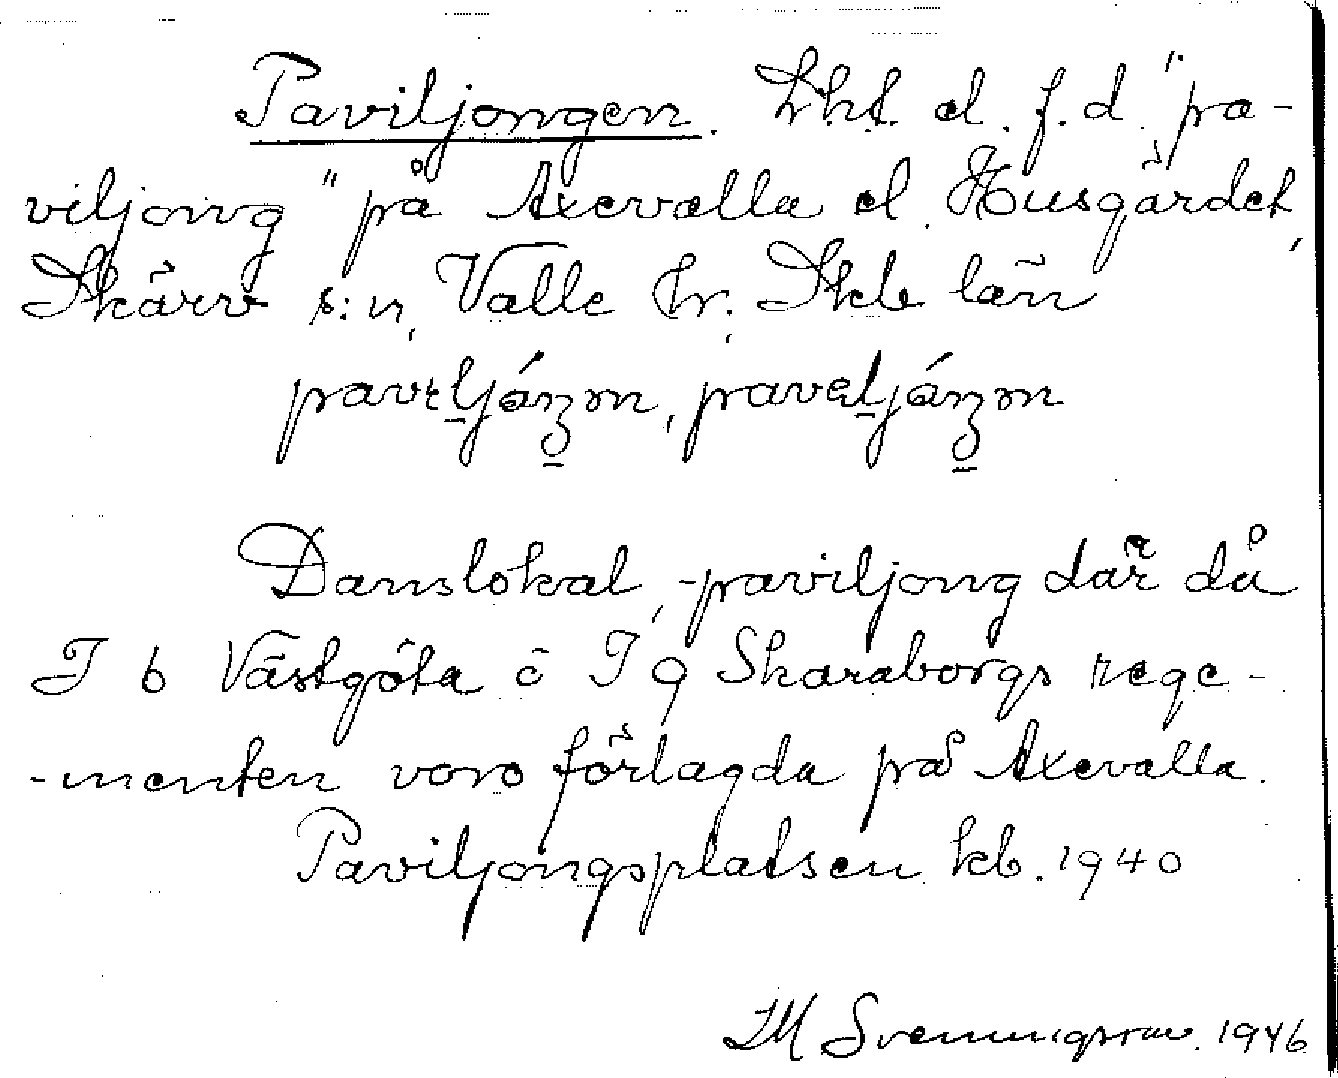 Paviljongen. Lht. el. f.d. "pa-
viljong" på Axevalla el. Husgärdet,
Skärv s:n, Valle hr, Skb län
Danslokal, -paviljong där då
I 6 Västgöta o I 9 Skaraborgs rege-
-menten voro förlagda på Axevalla.
Paviljongsplatsen kb. 1940
Sveningsson. 1946